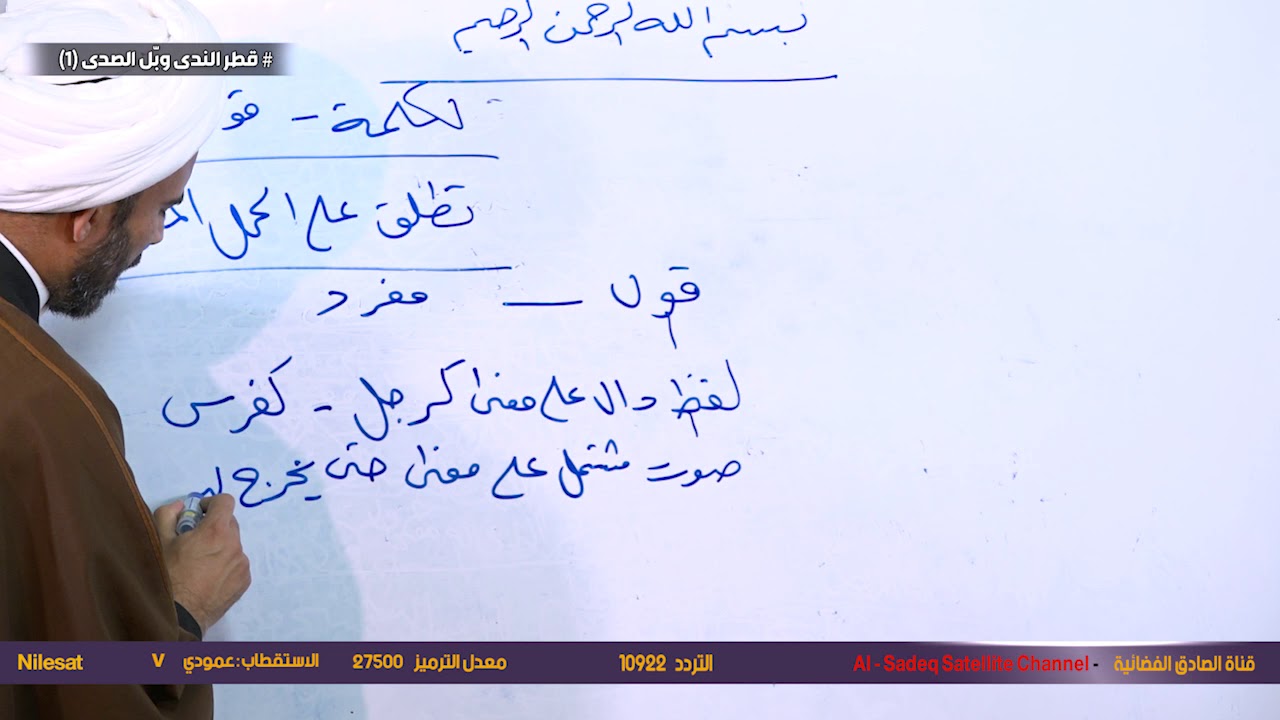 بسم الله الرحمن الرحيم
# قطر الندى وبّل الصدى (1)
لكلمة - قو
تطلق على الجمل
قول — مفرد
لفظ دال على معنى كرجل - كفرس
صوت مشتمل على معنى حتى يخرج
قناة الصادق الفضائية - Al - Sadeq Satellite Channel التردد 10922 معدل الترميز 27500 الاستقطاب : عمودي V Nilesat